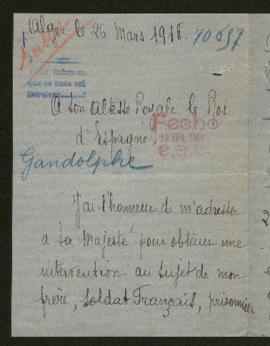 Alger le 26 Mars 1918.
70657
que se hace sel
A son altesse Royale le Roi
d'Espagne,
Fecho
19 ABR. 1918
Gandolphe
J'ai l'honneur de m'adresser
à Sa Majesté pour obtenir une
intervention au sujet de mon
frère, Soldat Français, prisonnier